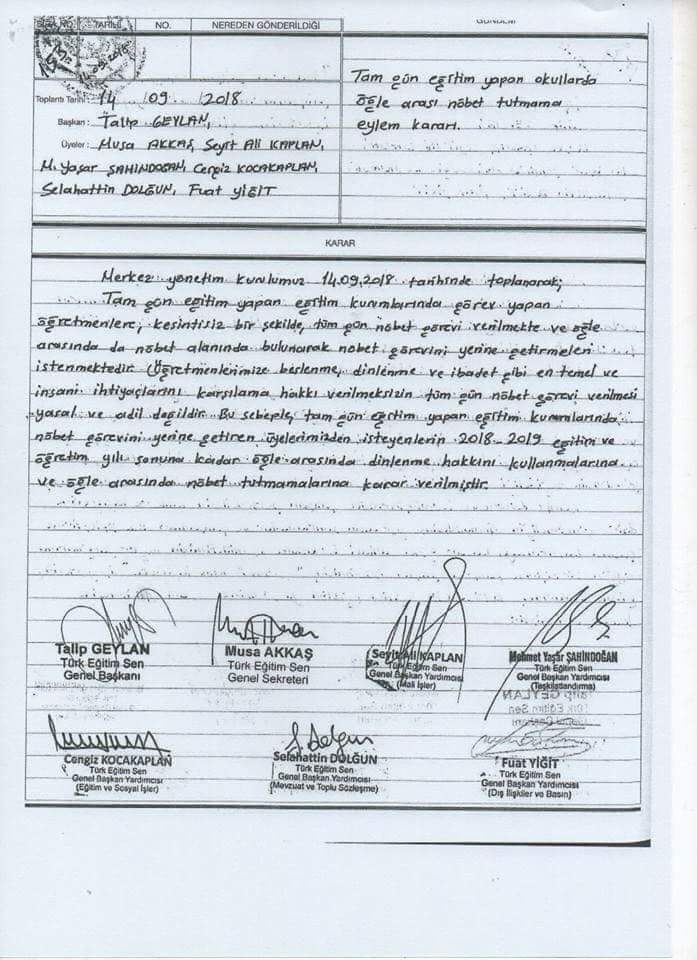 TARİHİ NO. NEREDEN GÖNDERİLDİĞİ
GÜNDEMİ
14.09.2018
Toplantı Tarihi: 14 09 2018
Başkan: Talip GEYLAN,
Üyeler: Musa AKKAŞ, Seyit Ali KAPLAN,
M. Yaşar ŞAHİNDOĞAN, Cengiz KOCAKAPLAN,
Selahattin DOLĞUN, Fuat YİĞİT
Tam gün eğitim yapan okullarda
öğle arası nöbet tutmama
eylem kararı.
KARAR
Merkez yönetim kurulumuz 14.09.2018 tarihinde toplanarak;
Tam gün eğitim yapan eğitim kurumlarında görev yapan
öğretmenlere; kesintisiz bir şekilde, tüm gün nöbet görevi verilmekte ve öğle
arasında da nöbet alanında bulunarak nöbet görevini yerine getirmeleri
istenmektedir. Öğretmenlerimize beslenme, dinlenme ve ibadet gibi en temel ve
insani ihtiyaçlarını karşılama hakkı verilmeksizin tüm gün nöbet görevi verilmesi
yasal ve adil değildir. Bu sebeple, tam gün eğitim yapan eğitim kurumlarında
nöbet görevini yerine getiren üyelerimizden isteyenlerin 2018-2019 eğitim ve
öğretim yılı sonuna kadar öğle arasında dinlenme hakkını kullanmalarına
ve öğle arasında nöbet tutmamalarına karar verilmiştir.
Talip GEYLAN
Türk Eğitim Sen
Genel Başkanı
Musa AKKAŞ
Türk Eğitim Sen
Genel Sekreteri
Seyit Ali KAPLAN
Türk Eğitim Sen
Genel Başkan Yardımcısı
(Mali İşler)
Mehmet Yaşar ŞAHİNDOĞAN
Türk Eğitim Sen
Genel Başkan Yardımcısı
(Teşkilatlandırma)
Talip GEYLAN
Türk Eğitim Sen
Genel Başkanı
Cengiz KOCAKAPLAN
Türk Eğitim Sen
Genel Başkan Yardımcısı
(Eğitim ve Sosyal İşler)
Selahattin DOLĞUN
Türk Eğitim Sen
Genel Başkan Yardımcısı
(Mevzuat ve Toplu Sözleşme)
Fuat YİĞİT
Türk Eğitim Sen
Genel Başkan Yardımcısı
(Dış İlişkiler ve Basın)